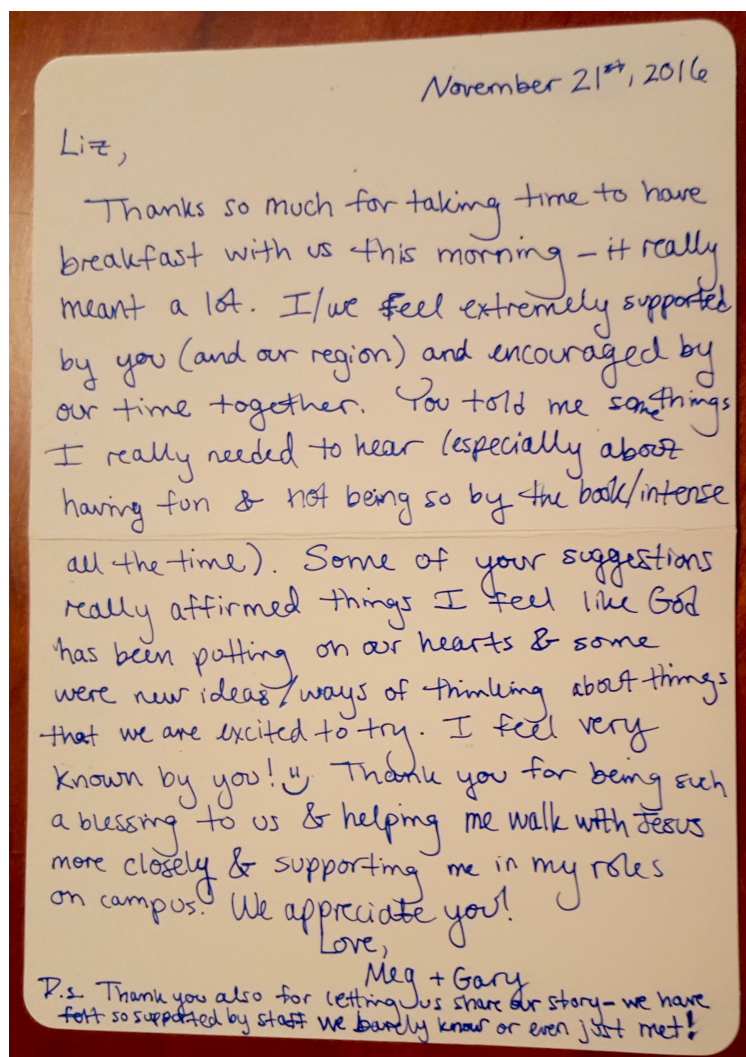 November 21st, 2016
Liz,
Thanks so much for taking time to have
breakfast with us this morning – it really
meant a lot. I/we feel extremely supported
by you (and our region) and encouraged by
our time together. You told me some things
I really needed to hear (especially about
having fun & not being so by the book/intense
all the time). Some of your suggestions
really affirmed things I feel like God
has been putting on our hearts & some
were new ideas/ways of thinking about things
that we are excited to try. I feel very
known by you! Thank you for being such
a blessing to us & helping me walk with Jesus
more closely & supporting me in my roles
on campus. We appreciate you!
Love,
Meg + Gary
P.S. Thank you also for letting us share our story – we have
felt so supported by staff we barely know or even just met!